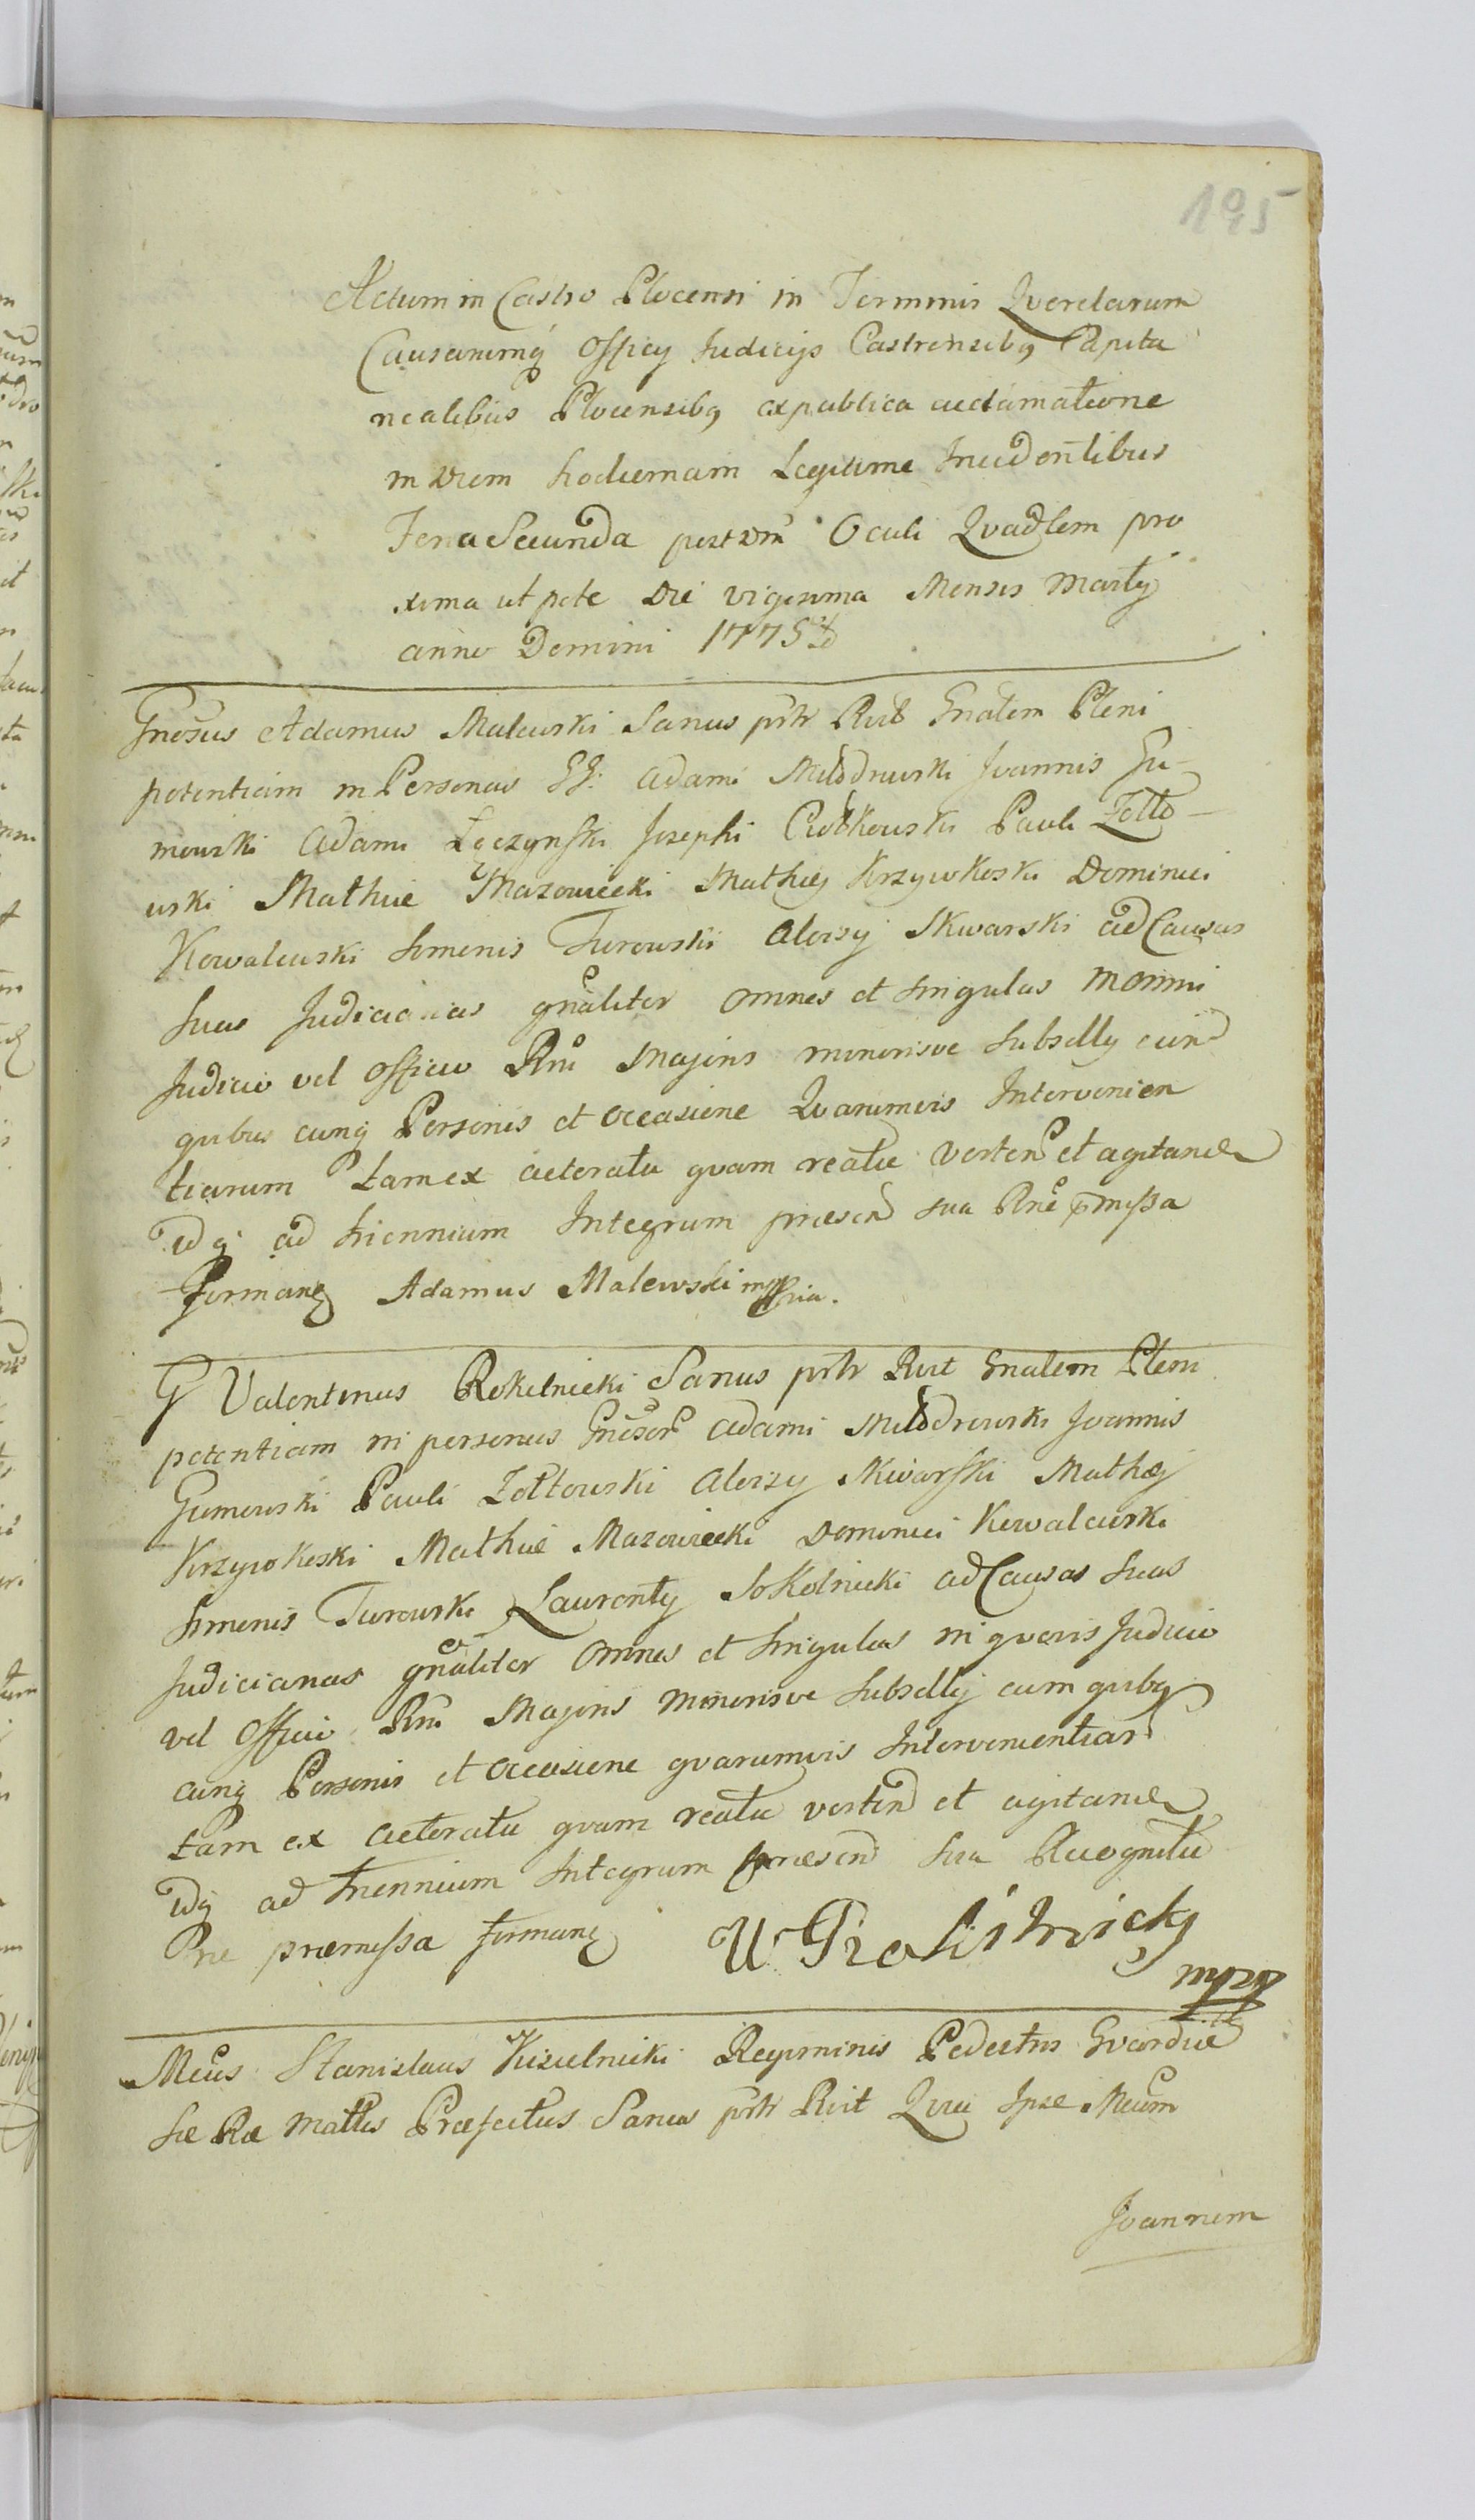 195
Actum in Castro Plocensi in Terminis Qverelarum
Causarumq Officy Judicijs Castrensibq Capita
nealibus Plocensibq ex publica acclamatione
in Diem hodiernam Legitime Incidentibus
Feria Secunda post Dm̄ Oculi Qvadlem pro
xima ut pote Die vigesima Mensis Martij
anno Domini 1775to
Gnesus Adamus Malewski Sanus pstr Rvit Gnalem Pleni
potentiam in Personas GG: Adami Młodzewski Joannis Gu-
mowski Adami Łęczynski Josephi Ciołkowski Pauli Zołto-
wski Mathiæ Mazowiecki Mathæj Krzywkoski Dominici
Kowalewski Simonis Turowski Aloizy Skwarski ad Causas
Suas Judiciarias gnaliter omnes et singulas in omni
Judicio vel Officio Rni Majoris minorisve Subselly cum
quibus cunq Personis et occasione Qvarumvis Intervenien
tiarum tam ex actoratu qvam reatu verten et agitand
idq ad triennium Integrum præsen sua Rne pmissa
firmanq Adamus Malewski mppria.
G Valentinus Rokitnicki Sanus pstr Rvit Gnalem Pleni
potentiam in personas Gnesor Adami Młodzewski Joannis
Gumowski Pauli Zołtowski Aloizy Skwarski Mathæj
Krzywkoski Mathiæ Mazowiecki Dominici Kowalewski
Simonis Turowski Laurentij Sokolnicki ad Causas Suas
Judiciarias gnaliter omnes et singulas in qvovis Judicio
vel Officio Rni Majoris minorisve Subsellij cum quibq
cunq Personis et occasione qvarumvis Intervenientiar
tam ex actoratu qvam reatu verten et agitand
idq ad triennium Integrum præsen sua Recognitu
Rne præmissa firmanq W Rokitnicky
mpp
Mcus Stanislaus Kisielnicki Regiminis Pedestris Gvardiæ
Sæ Ræ Mattis Præfectus Sanus pstr Rvit Qvia Ipse Mcum
Joannem